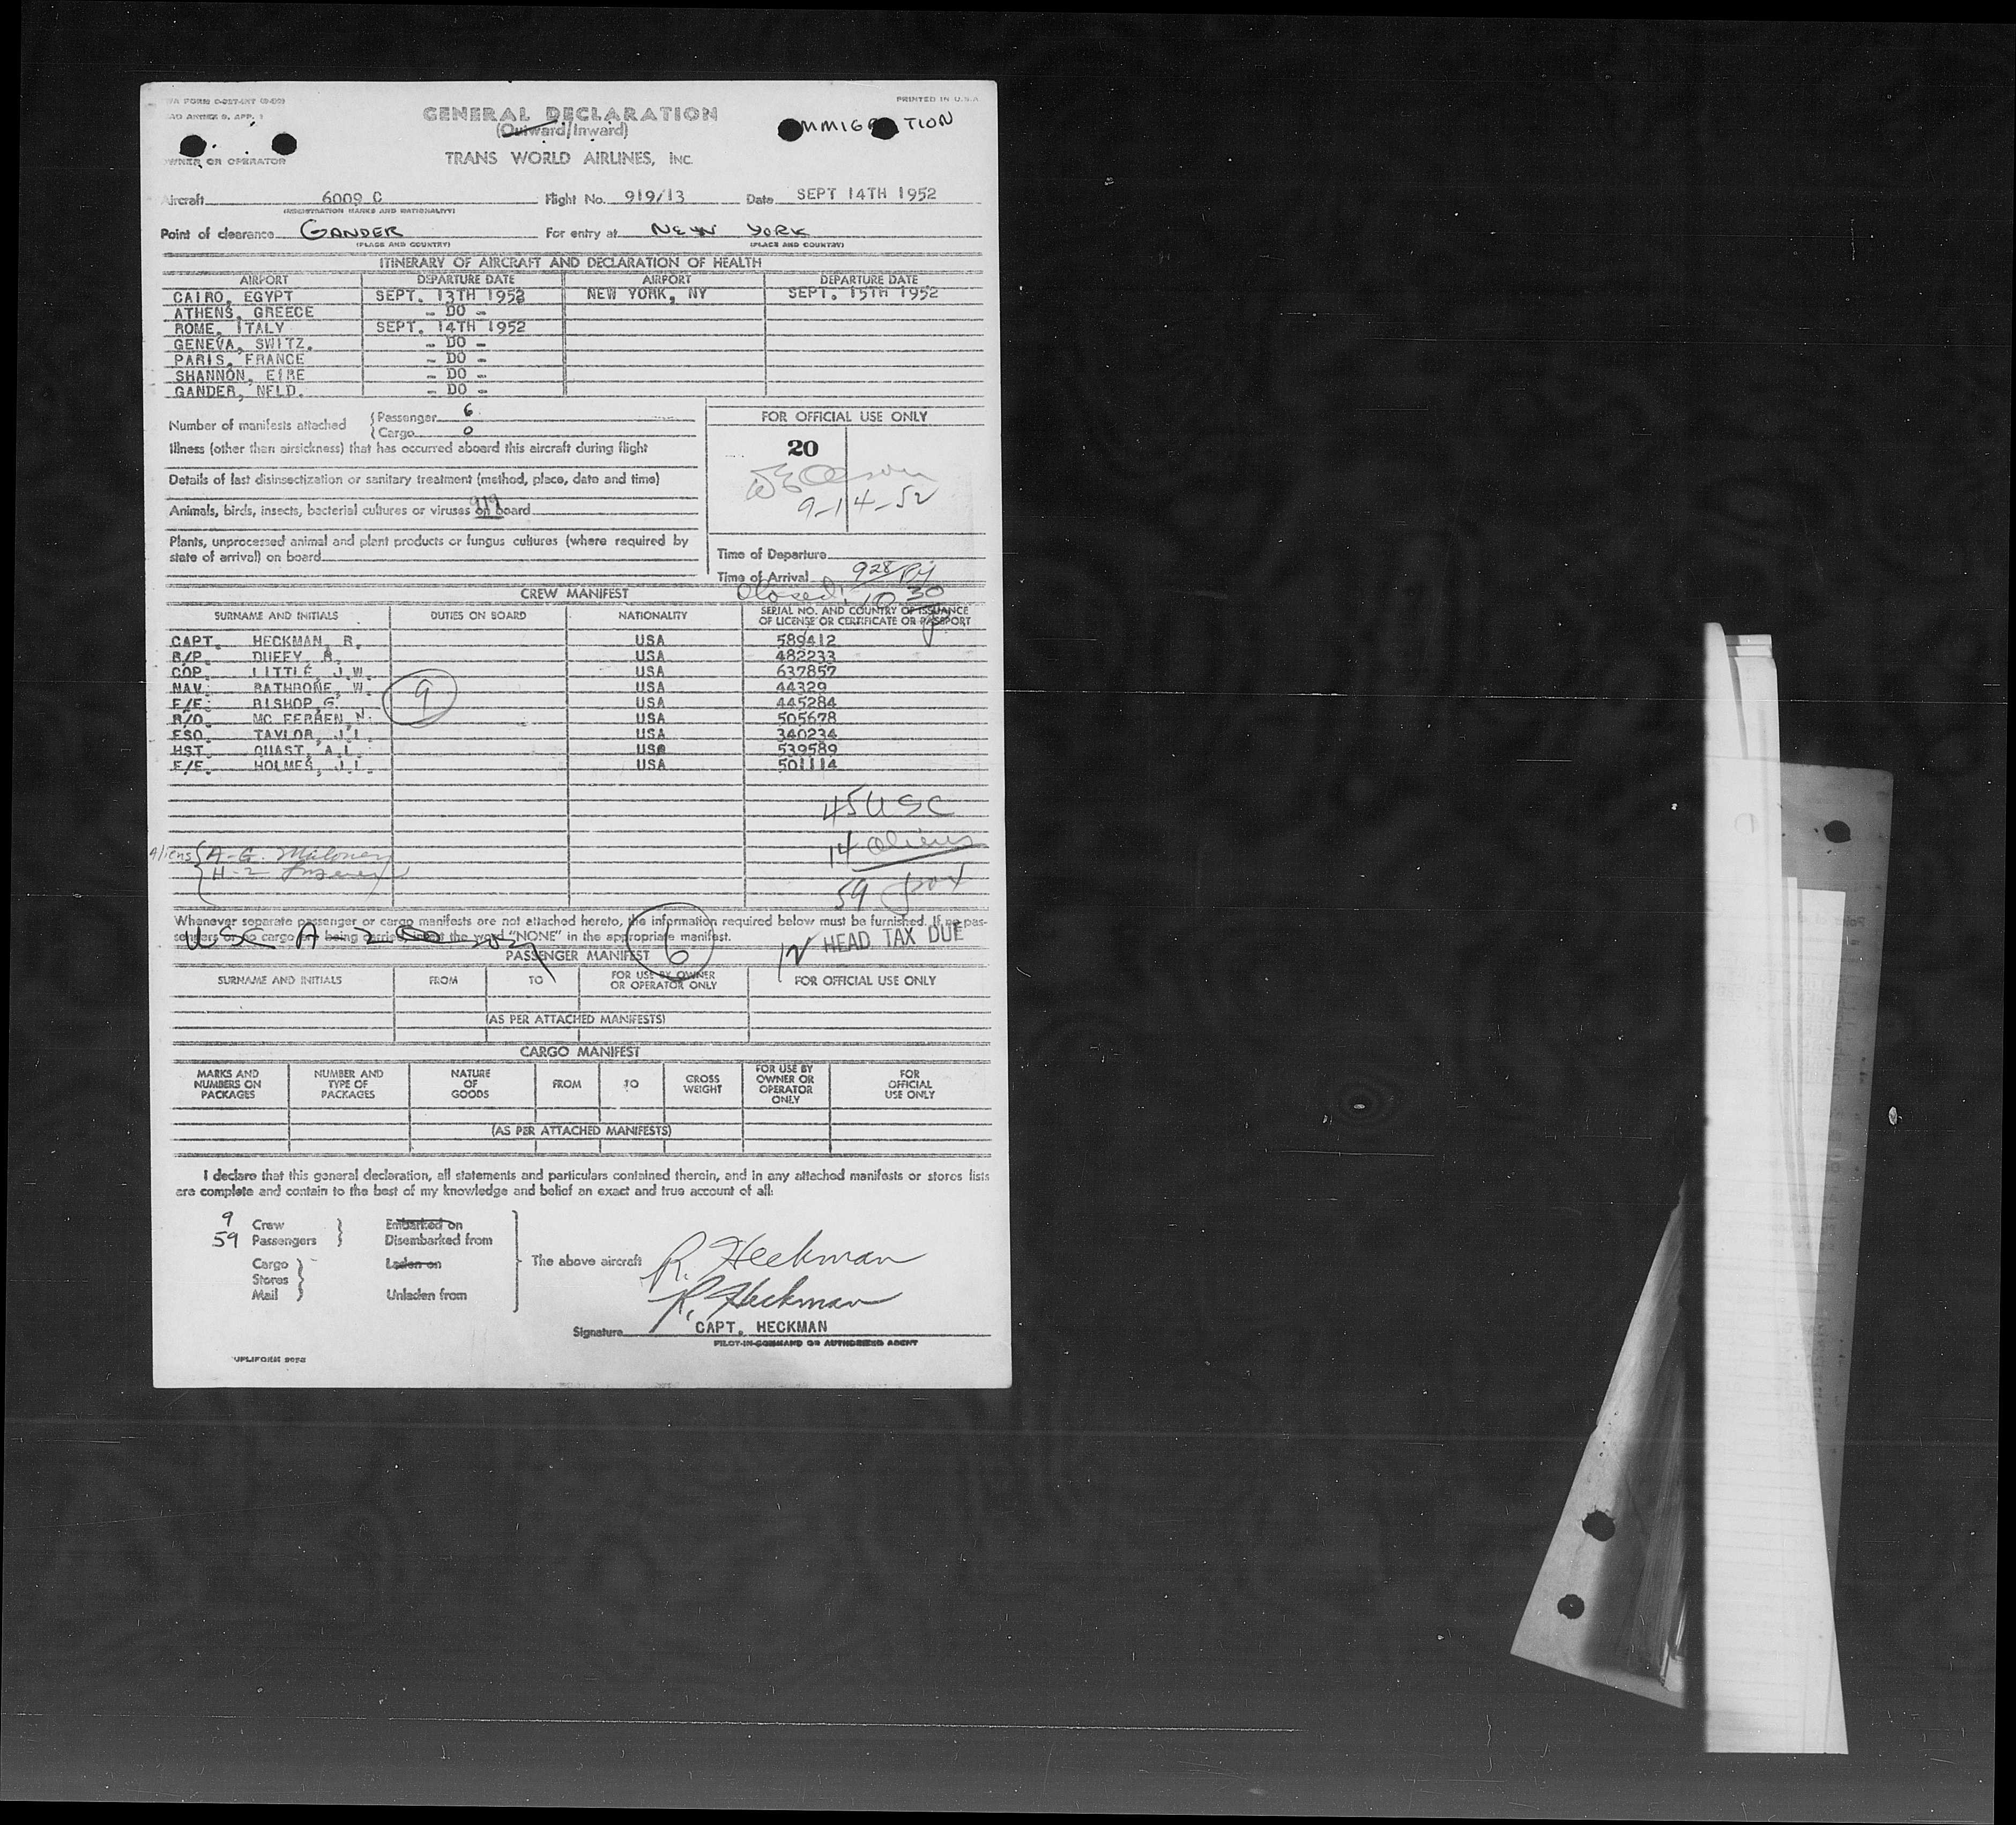 GENERAL DECLARATION
PRINTED IN U.S.A.
(Outward/Inward)
IMMIGRATION
OWNER OR OPERATOR
TRANS WORLD AIRLINES, INC.
Aircraft 6009 C Flight No. 919/13 Date SEPT 14TH 1952
(REGISTRATION MARKS AND NATIONALITY)
Point of clearance GANDER For entry at NEW YORK
(PLACE AND COUNTRY) (PLACE AND COUNTRY)
ITINERARY OF AIRCRAFT AND DECLARATION OF HEALTH
AIRPORT DEPARTURE DATE AIRPORT DEPARTURE DATE
CAIRO, EGYPT SEPT. 13TH 1952 NEW YORK, NY SEPT. 15TH 1952
ATHENS, GREECE - DO -
ROME, ITALY SEPT. 14TH 1952
GENEVA, SWITZ. - DO -
PARIS, FRANCE - DO -
SHANNON, EIRE - DO -
GANDER, NFLD. - DO -
Number of manifests attached { Passenger 6
{ Cargo 0
FOR OFFICIAL USE ONLY
20
9-14-52
Illness (other than airsickness) that has occurred aboard this aircraft during flight
Details of last disinsectization or sanitary treatment (method, place, date and time)
919
Animals, birds, insects, bacterial cultures or viruses on board
Plants, unprocessed animal and plant products or fungus cultures (where required by
state of arrival) on board
Time of Departure
Time of Arrival 928
Closed: 10 30
CREW MANIFEST
SURNAME AND INITIALS DUTIES ON BOARD NATIONALITY SERIAL NO. AND COUNTRY OF ISSUANCE
OF LICENSE OR CERTIFICATE OR PASSPORT
CAPT. HECKMAN, R. USA 589412
R/P. DUFFY, R. USA 482233
COP. LITTLE, J.W. USA 637857
NAV. RATHBONE, W. USA 44329
F/E. BISHOP, G. USA 445284
R/O. MC FERREN, N. USA 505678
FSO. TAYLOR, J.L. USA 340234
HST. QUAST, A.L. USA 539589
F/E. HOLMES, J.L. USA 501114
9
45 USC
14 aliens
59 pax
Aliens { A-G. Maloney
H-2
Whenever separate passenger or cargo manifests are not attached hereto, the information required below must be furnished. If no pas-
sengers or no cargo are being carried, insert the word "NONE" in the appropriate manifest.
USC A-2
6
12 HEAD TAX DUE
PASSENGER MANIFEST
SURNAME AND INITIALS FROM TO FOR USE BY OWNER
OR OPERATOR ONLY FOR OFFICIAL USE ONLY
(AS PER ATTACHED MANIFESTS)
CARGO MANIFEST
MARKS AND
NUMBERS ON
PACKAGES NUMBER AND
TYPE OF
PACKAGES NATURE
OF
GOODS FROM TO GROSS
WEIGHT FOR USE BY
OWNER OR
OPERATOR
ONLY FOR
OFFICIAL
USE ONLY
(AS PER ATTACHED MANIFESTS)
I declare that this general declaration, all statements and particulars contained therein, and in any attached manifests or stores lists
are complete and contain to the best of my knowledge and belief an exact and true account of all:
9 Crew } Embarked on
59 Passengers } Disembarked from
Cargo } Laden on
Stores
Mail } Unladen from
The above aircraft R. Heckman
R. Heckman
Signature CAPT. HECKMAN
PILOT-IN-COMMAND OR AUTHORIZED AGENT